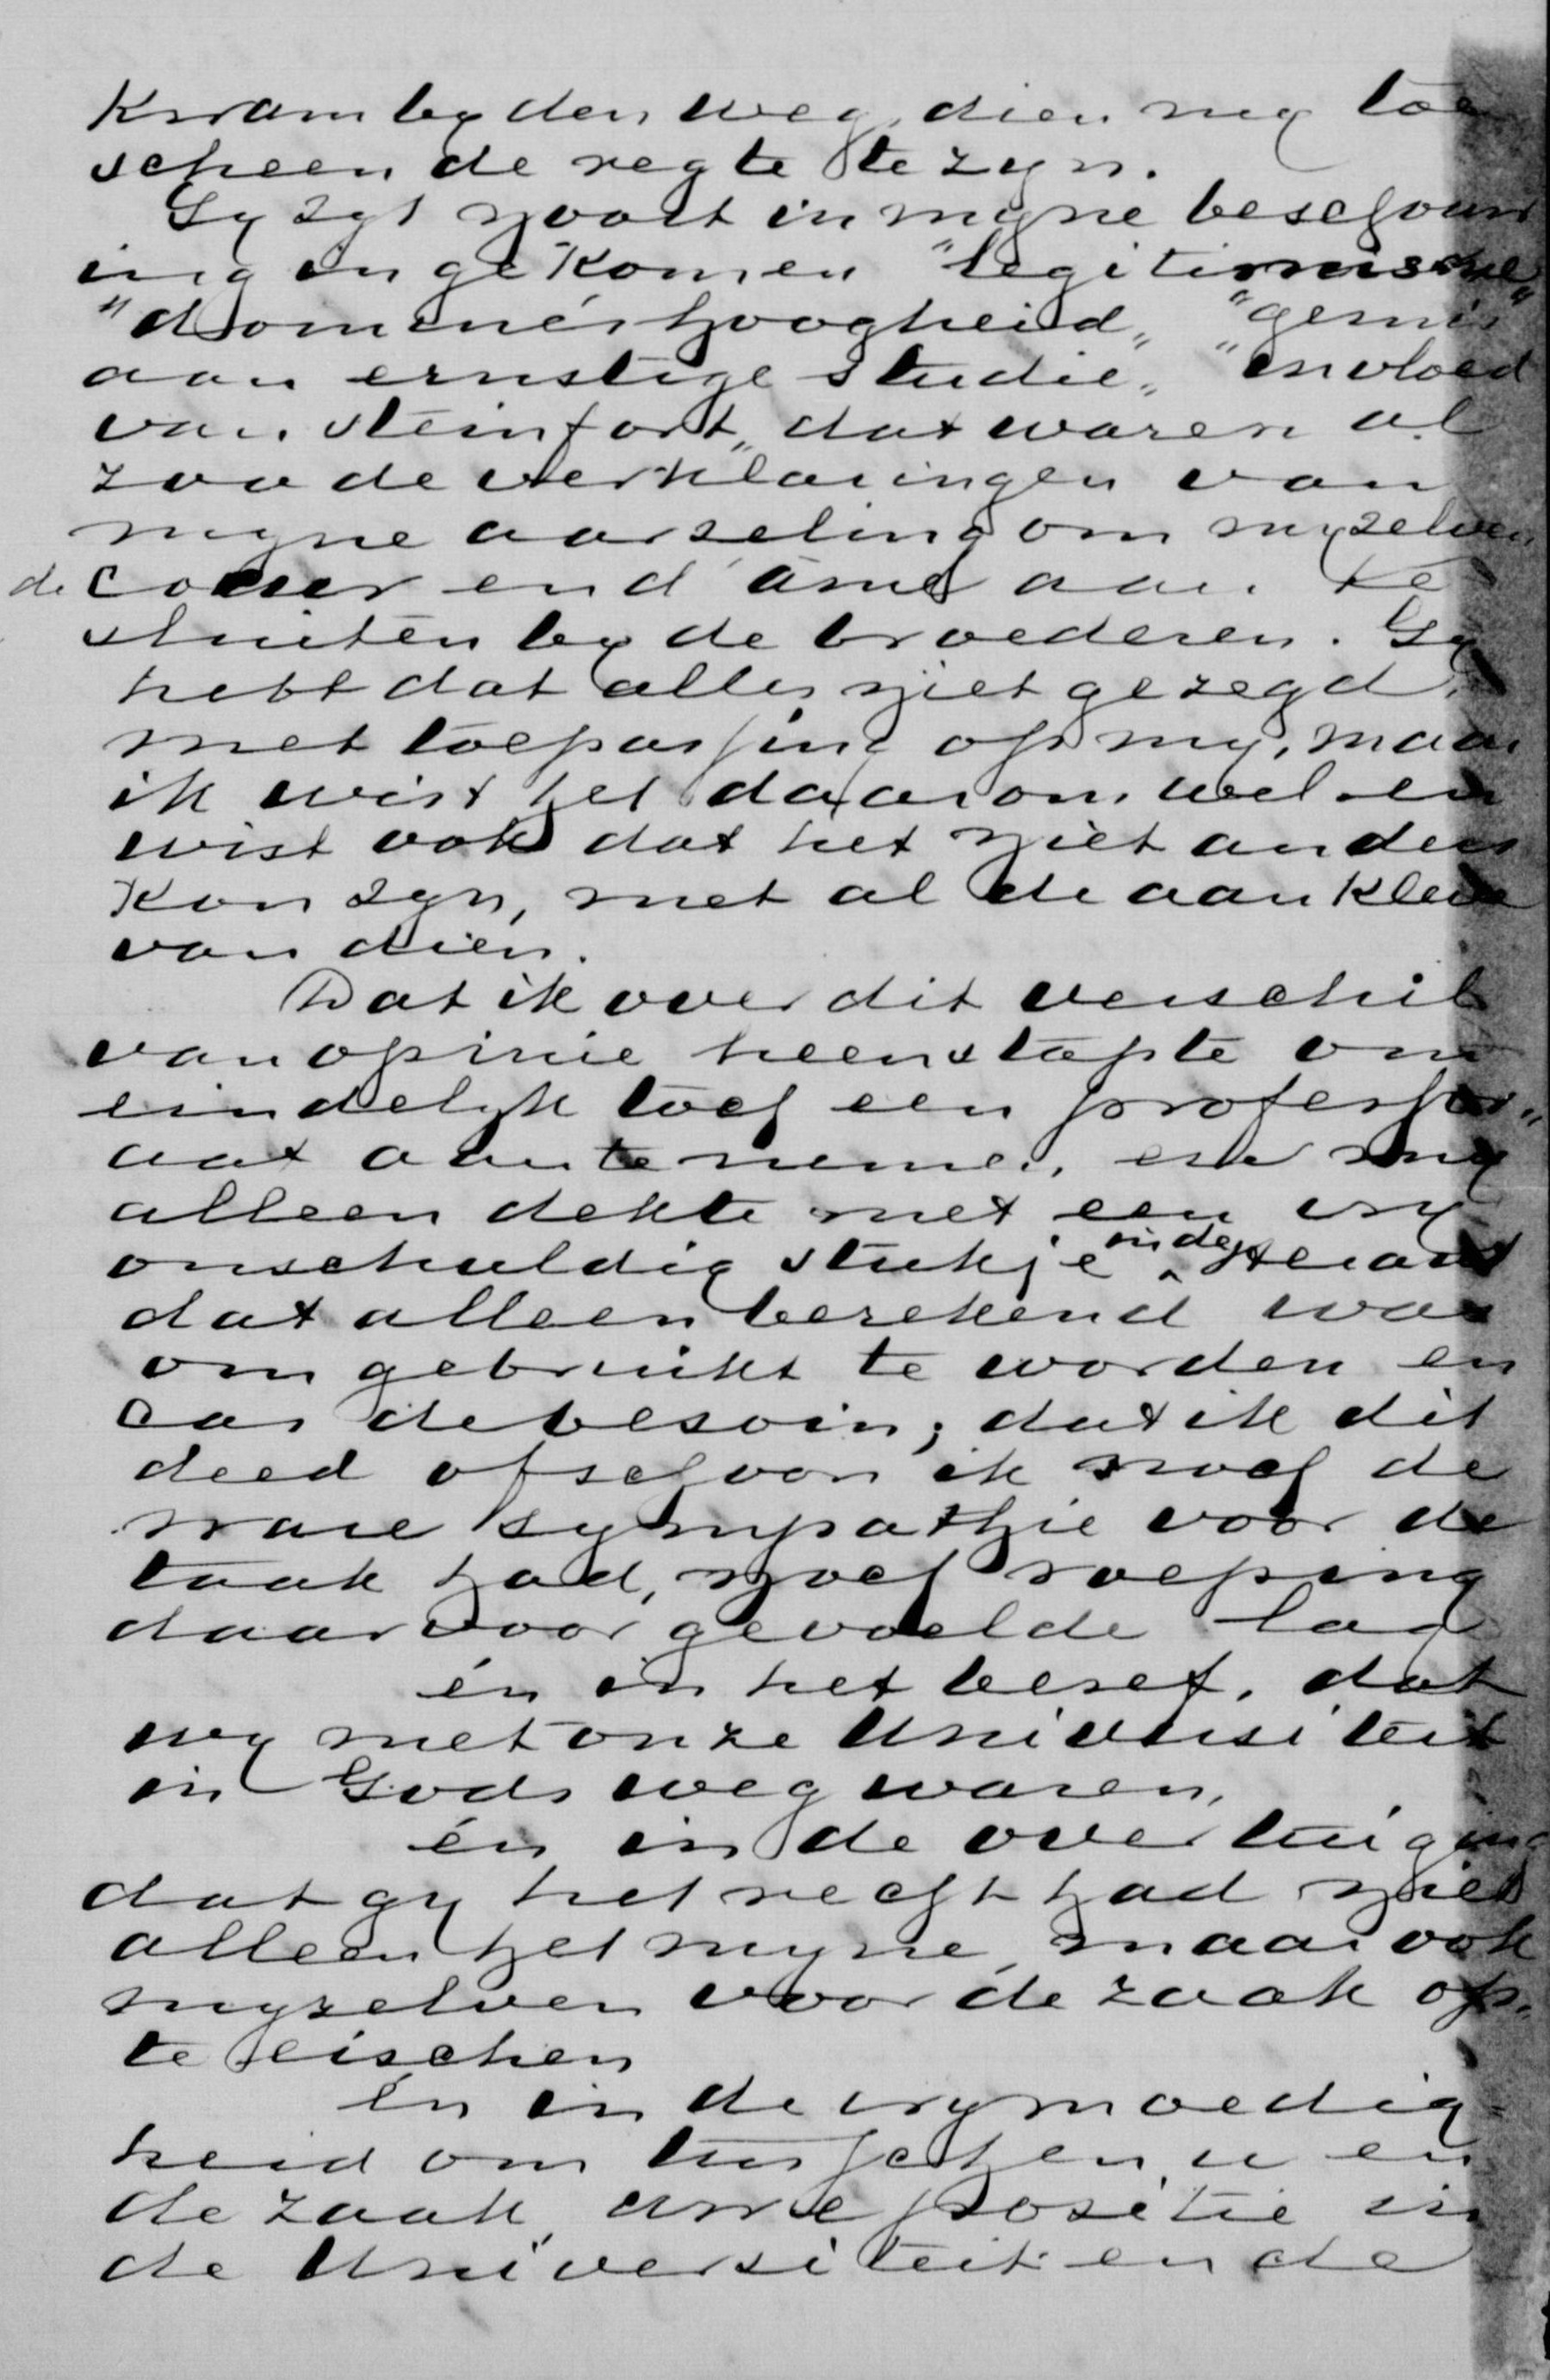 kwam by den weg, dien my toe
scheen de regte te zyn.
Gy zyt nooit in myne beschouw
ing ingekomen "legitimische"
"dominéshoogheid" "gemis
aan ernstige studie" "invloed
van Steinfort" dat waren al
zoo de verklaringen van
myne aarzeling om myzelven
de coeur en d'âme aan te
sluiten by de broederen. Gy
hebt dat alles niet gezegd
met toepassing op my, maar
ik wist het daarom wel en
wist ook dat het niet anders
kon zyn, met al de aankleve
van dien.
Dat ik over dit verschil
van opinie heenstapte om
eindelyk toch een professor"
aat aan te nemen, en my
alleen dekte met een vry
onschuldig stukje in de Heraut
dat alleen berekend was
om gebruikt te worden en
cas de besoin; dat ik dit
deed ofschoon ik noch de
ware sympathie voor de
taak had, noch roeping
daarvoor gevoelde lag
én in het besef, dat
wy met onze Universiteit
in Gods weg waren,
én in de overtuiging
dat gy het recht had niet
alleen het myne, maar ook
myzelven voor de zaak op
te eischen
én in de vrymoedig=
heid om tusschen u en
de zaak, uwe positie in
de Universiteit en de